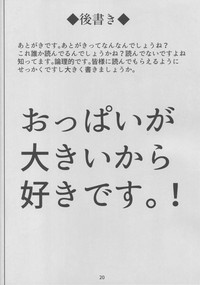 ◆後書き◆
あとがきです。あとがきってなんなんでしょうね?
これ誰か読んでるんでしょうかね?読んでないですよね
知ってます。論理的です。皆様に読んでもらえるように
せっかくですし大きく書きましょうか。
おっぱいが
大きいから
好きです。!
20